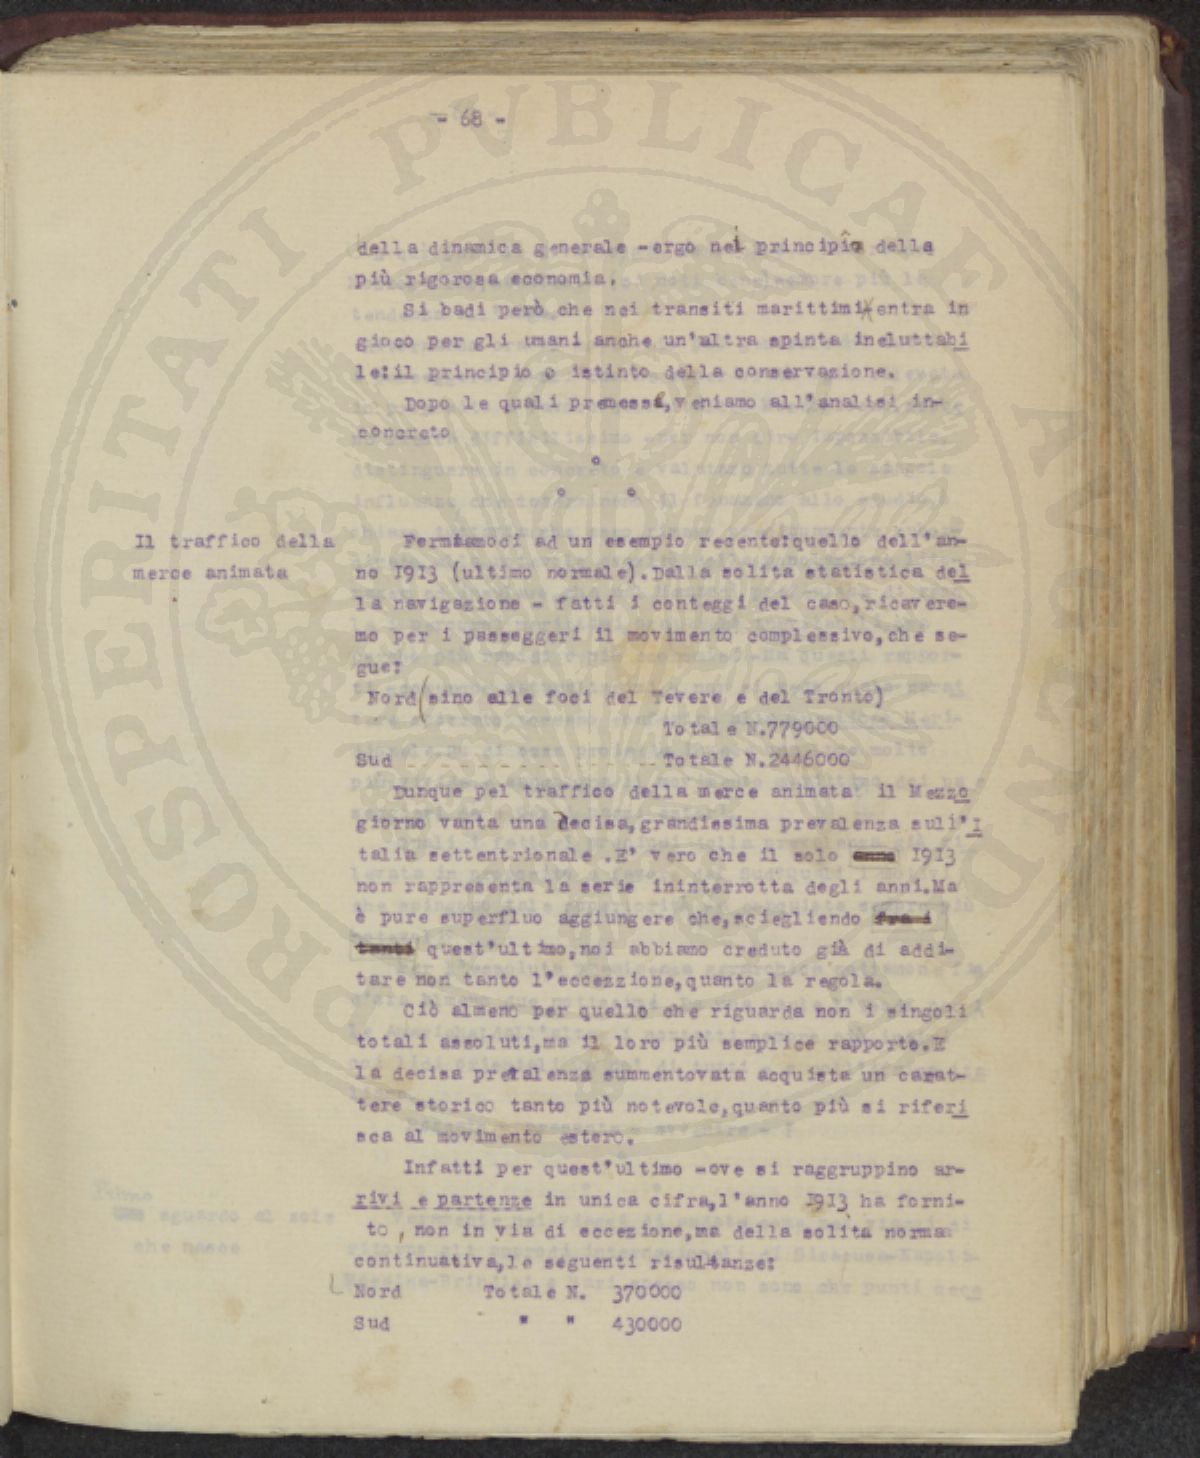 - 68 -
della dinamica generale -ergo nei principio della
più rigorosa economia.
Si badi però che nei transiti marittimi entra in
gioco per gli umani anche un'altra spinta ineluttabi
le:il principio o istinto della conservazione.
Dopo le quali premesse,veniamo all'analisi in-
concreto
Il traffico della
merce animata
Fermiamoci ad un esempio recente:quello dell'an-
no 1913 (ultimo normale).Dalla solita statistica del
la navigazione - fatti i conteggi del caso,ricavere-
mo per i passeggeri il movimento complessivo,che se-
gue:
Nord(sino alle foci del Tevere e del Tronto)
Totale N.779000
Sud - - - - - - - - - - - - - - Totale N.2446000
Dunque pel traffico della merce animata il Mezzo
giorno vanta una decisa,grandissima prevalenza sull'I
talia settentrionale .E' vero che il solo anno 1913
non rappresenta la serie ininterrotta degli anni.Ma
è pure superfluo aggiungere che,sciegliendo fra i
tanti quest'ultimo,noi abbiamo creduto già di addi-
tare non tanto l'eccezzione,quanto la regola.
Ciò almeno per quello che riguarda non i singoli
totali assoluti,ma il loro più semplice rapporto.E
la decisa prevalenza summentovata acquista un carat-
tere storico tanto più notevole,quanto più si riferi
sca al movimento estero.
Infatti per quest'ultimo -ove si raggruppino ar-
rivi e partenze in unica cifra,l'anno 1913 ha forni-
to , non in via di eccezione,ma della solita norma
continuativa,le seguenti risultanze:
Nord Totale N. 370000
Sud " " 430000
PROSPERITATI PVBLICAE AVGENDAE